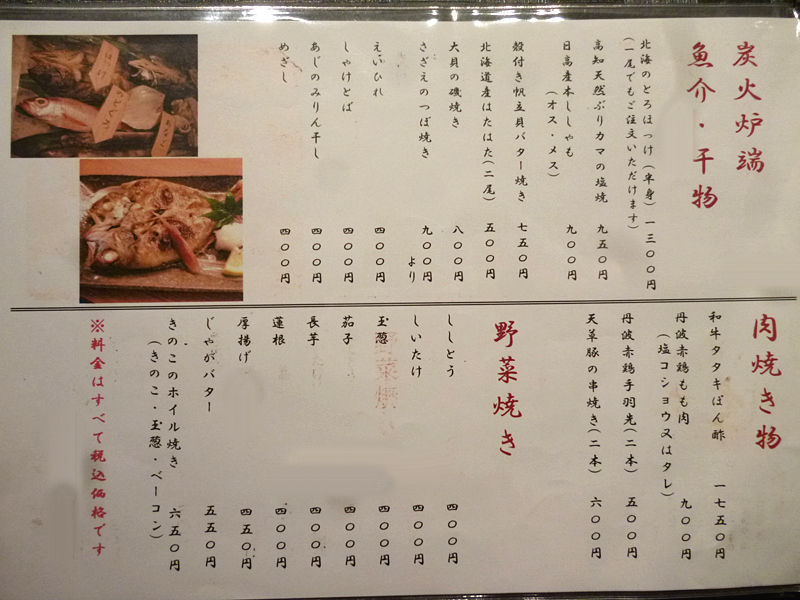 炭火炉端
魚介・干物
北海のとろほっけ（半身） 一三〇〇円
（一尾でもご注文いただけます）
高知天然ぶりカマの塩焼 九五〇円
日高産本ししゃも 九〇〇円
（オス・メス）
殻付き帆立貝バター焼き 七五〇円
北海道産はたはた（二尾） 五〇〇円
大貝の磯焼き 八〇〇円
さざえのつぼ焼き 九〇〇円より
えいひれ 四〇〇円
しゃけとば 四〇〇円
あじのみりん干し 四〇〇円
めざし 四〇〇円
肉焼き物
和牛タタキぽん酢 一七五〇円
丹波赤鶏もも肉 九〇〇円
（塩コショウ又はタレ）
丹波赤鶏手羽先（二本） 五〇〇円
天草豚の串焼き（二本） 六〇〇円
野菜焼き
ししとう 四〇〇円
しいたけ 四〇〇円
玉葱 四〇〇円
茄子 四〇〇円
長芋 四〇〇円
蓮根 四〇〇円
厚揚げ 四五〇円
じゃがバター 五五〇円
きのこのホイル焼き 六五〇円
（きのこ・玉葱・ベーコン）
※料金はすべて税込価格です